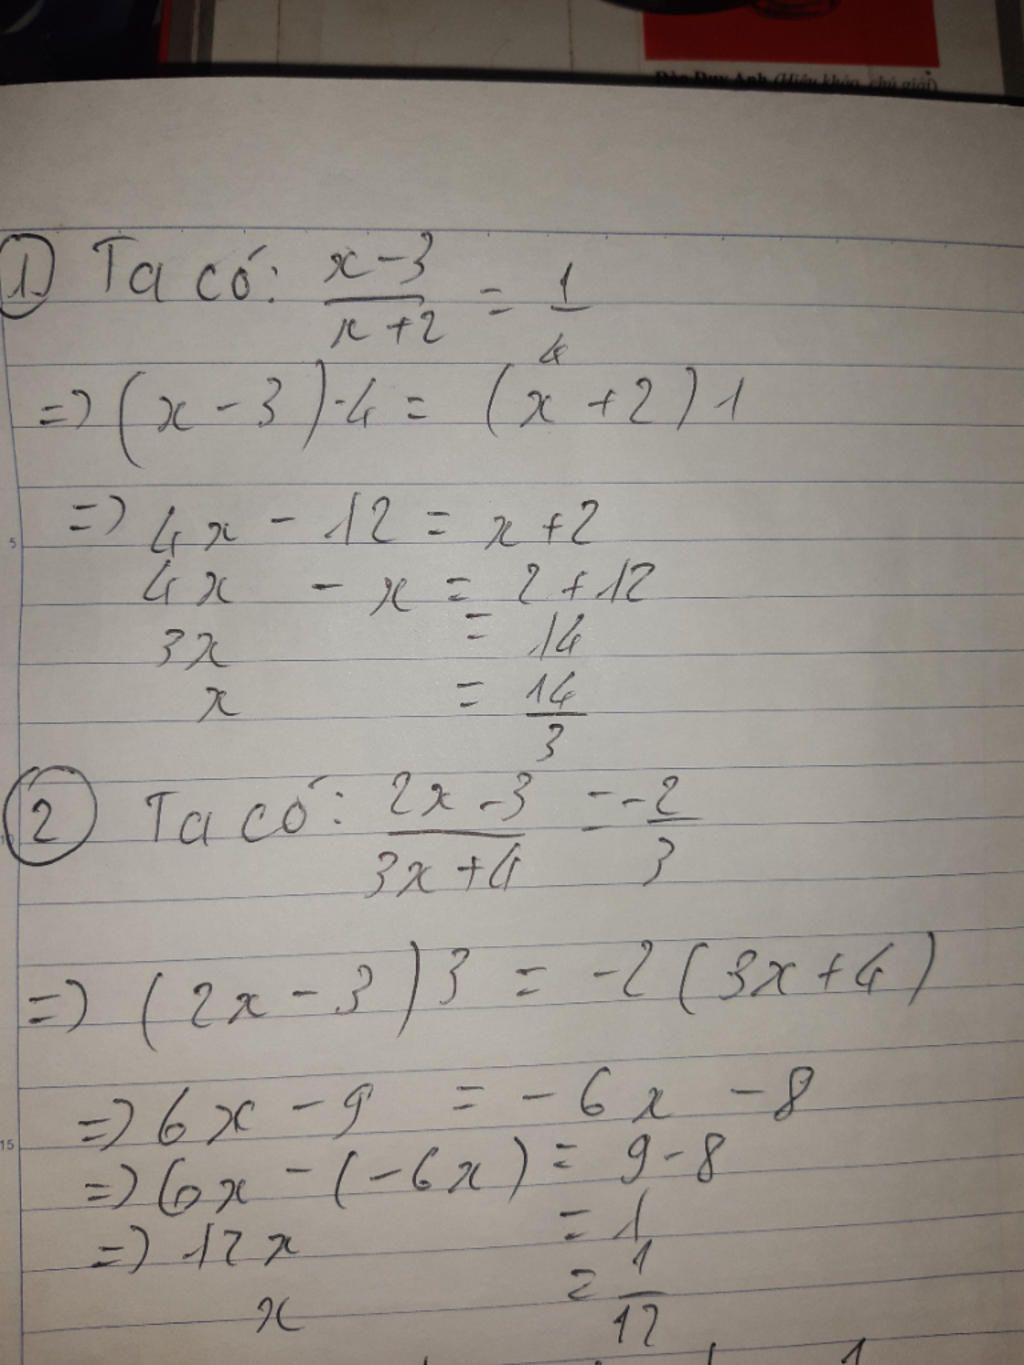 Đào Duy Anh (Hiệu khảo, chú giải)
1) Ta có: (x-3)/(x+2) = 1/4
=> (x - 3)·4 = (x + 2) 1
=> 4x - 12 = x + 2
4x - x = 2 + 12
3x = 14
x = 14/3
2 Ta có: (2x - 3)/(3x + 4) = -2/3
=> (2x - 3) 3 = -2 (3x + 4)
=> 6x - 9 = -6x - 8
=> 6x - (-6x) = 9 - 8
=> 12x = 1
x = 1/12
5
15